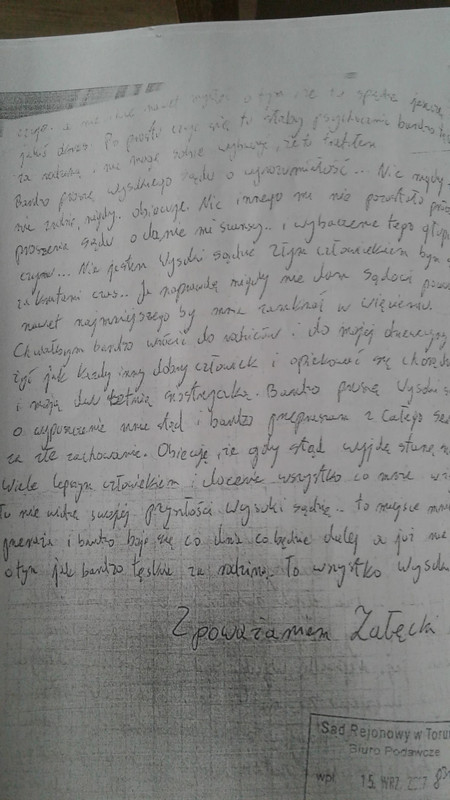 czego. a nie nawet myśleć o tym że tu spędzę jeszcze
jakiś okres. Po prostu czuję się tu słaby psychicznie bardzo
za rodziną, i nie mogę sobie wybaczyć, że tu trafiłem
Bardzo proszę wysokiego sądu o wyrozumiałość... Nic nigdy
nie zrobię, nigdy. obiecuję. Nic innego mi nie pozostało
proszenie sądu o danie mi szansy.. i wybaczenie tego
czynu... Nie jestem Wysoki sądzie złym człowiekiem
za kratami czas.. Ja naprawdę nigdy nie dam sądowi
nawet najmniejszego by mnie zamknąć w więzieniu.
Chciałbym bardzo wrócić do rodziców i do mojej dziewczyny
żyć jak każdy inny dobry człowiek i opiekować się
i moją dwu letnią siostrzyczką. Bardzo proszę Wysoki
o wypuszczenie mnie stąd i bardzo przepraszam z całego
za złe zachowanie. Obiecuję, że gdy stąd wyjdę stanę
Wiele lepszym człowiekiem i docenię wszystko co mnie
Tu nie widzę swojej przyszłości Wysoki sądzie.. to miejsce mnie
przeraża i bardzo boję się co dnia co będzie dalej a już nie
o tym jak bardzo tęsknię za rodziną. To wszystko Wysoki
Z poważaniem Załęcki
Sąd Rejonowy w Toru
Biuro Podawcze
wpł. 15. WRZ.